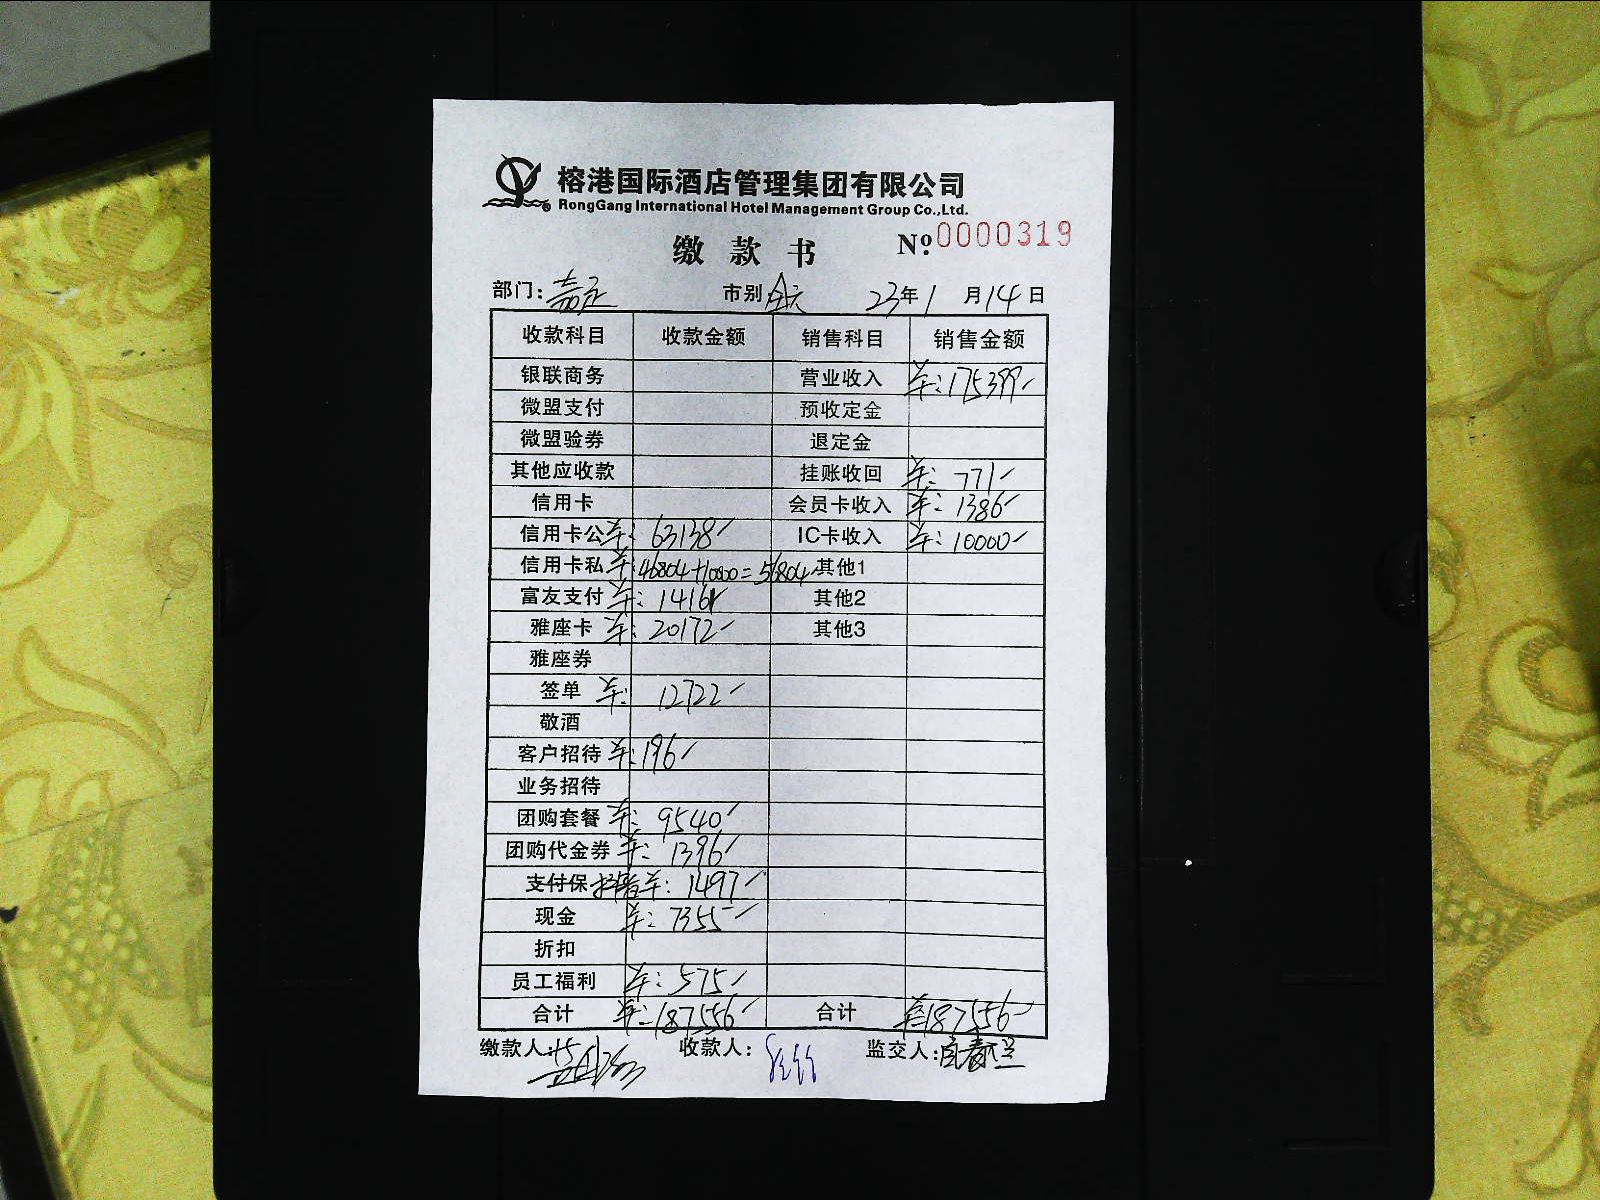 榕港国际酒店管理集团有限公司
RongGang International Hotel Management Group Co.,Ltd.
缴款书 №0000319
部门：嘉定 市别 全天 23年1月14日
收款科目 收款金额 销售科目 销售金额
银联商务 营业收入 ¥：175399
微盟支付 预收定金
微盟验券 退定金
其他应收款 挂账收回 ¥：771
信用卡 会员卡收入 ¥：1386
信用卡公 ¥：63138 IC卡收入 ¥：10000
信用卡私 ¥：46804+10000=56804 其他1
富友支付 ¥：14161 其他2
雅座卡 ¥：20172 其他3
雅座券
签单 ¥：12722
敬酒
客户招待 ¥：196
业务招待
团购套餐 ¥：9540
团购代金券 ¥：1396
支付保 抖音 ¥：1497
现金 ¥：7355
折扣
员工福利 ¥：575
合计 ¥：187556 合计 ¥187556
缴款人： 收款人： 监交人：